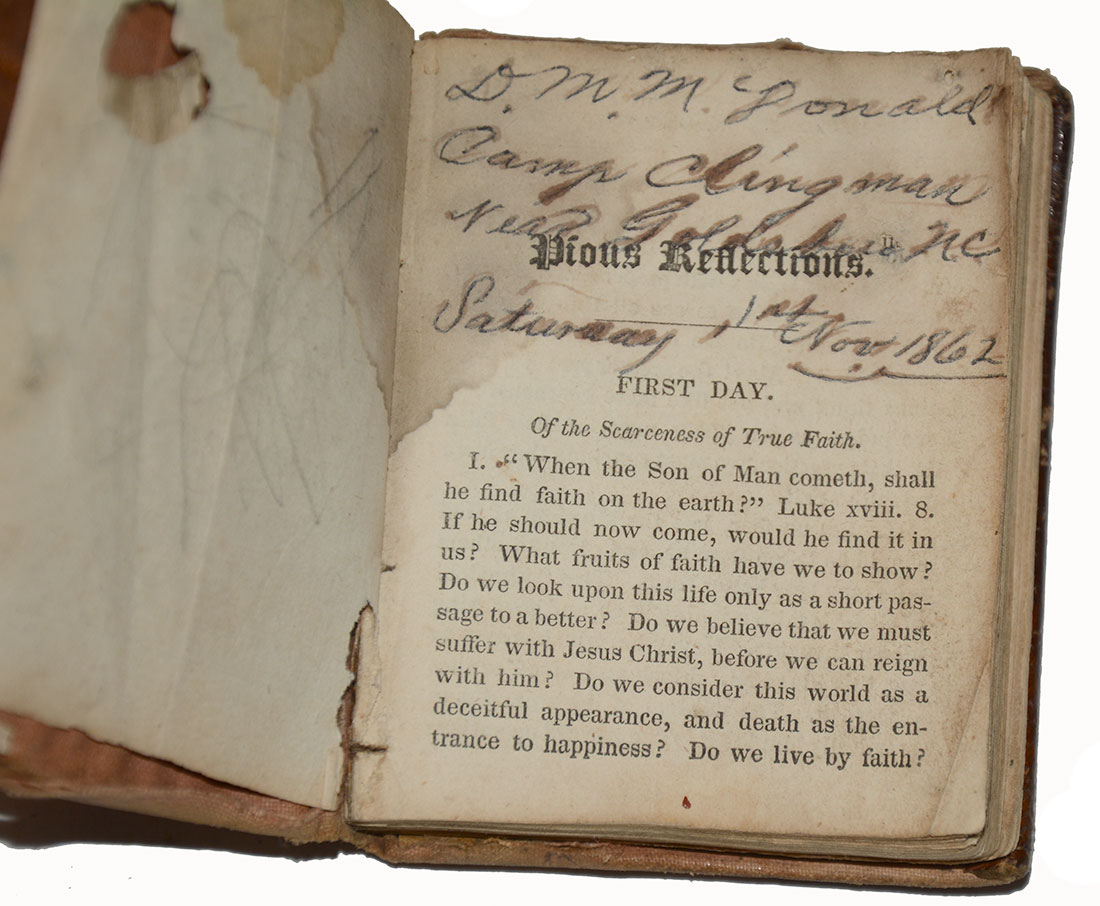 D. M. McDonald
Camp Clingman
Near Goldsboro NC
Pious Reflections.
Saturday, 1st Nov 1862
FIRST DAY.
Of the Scarceness of True Faith.
I. “When the Son of Man cometh, shall
he find faith on the earth?” Luke xviii. 8.
If he should now come, would he find it in
us? What fruits of faith have we to show?
Do we look upon this life only as a short pas-
sage to a better? Do we believe that we must
suffer with Jesus Christ, before we can reign
with him? Do we consider this world as a
deceitful appearance, and death as the en-
trance to happiness? Do we live by faith?